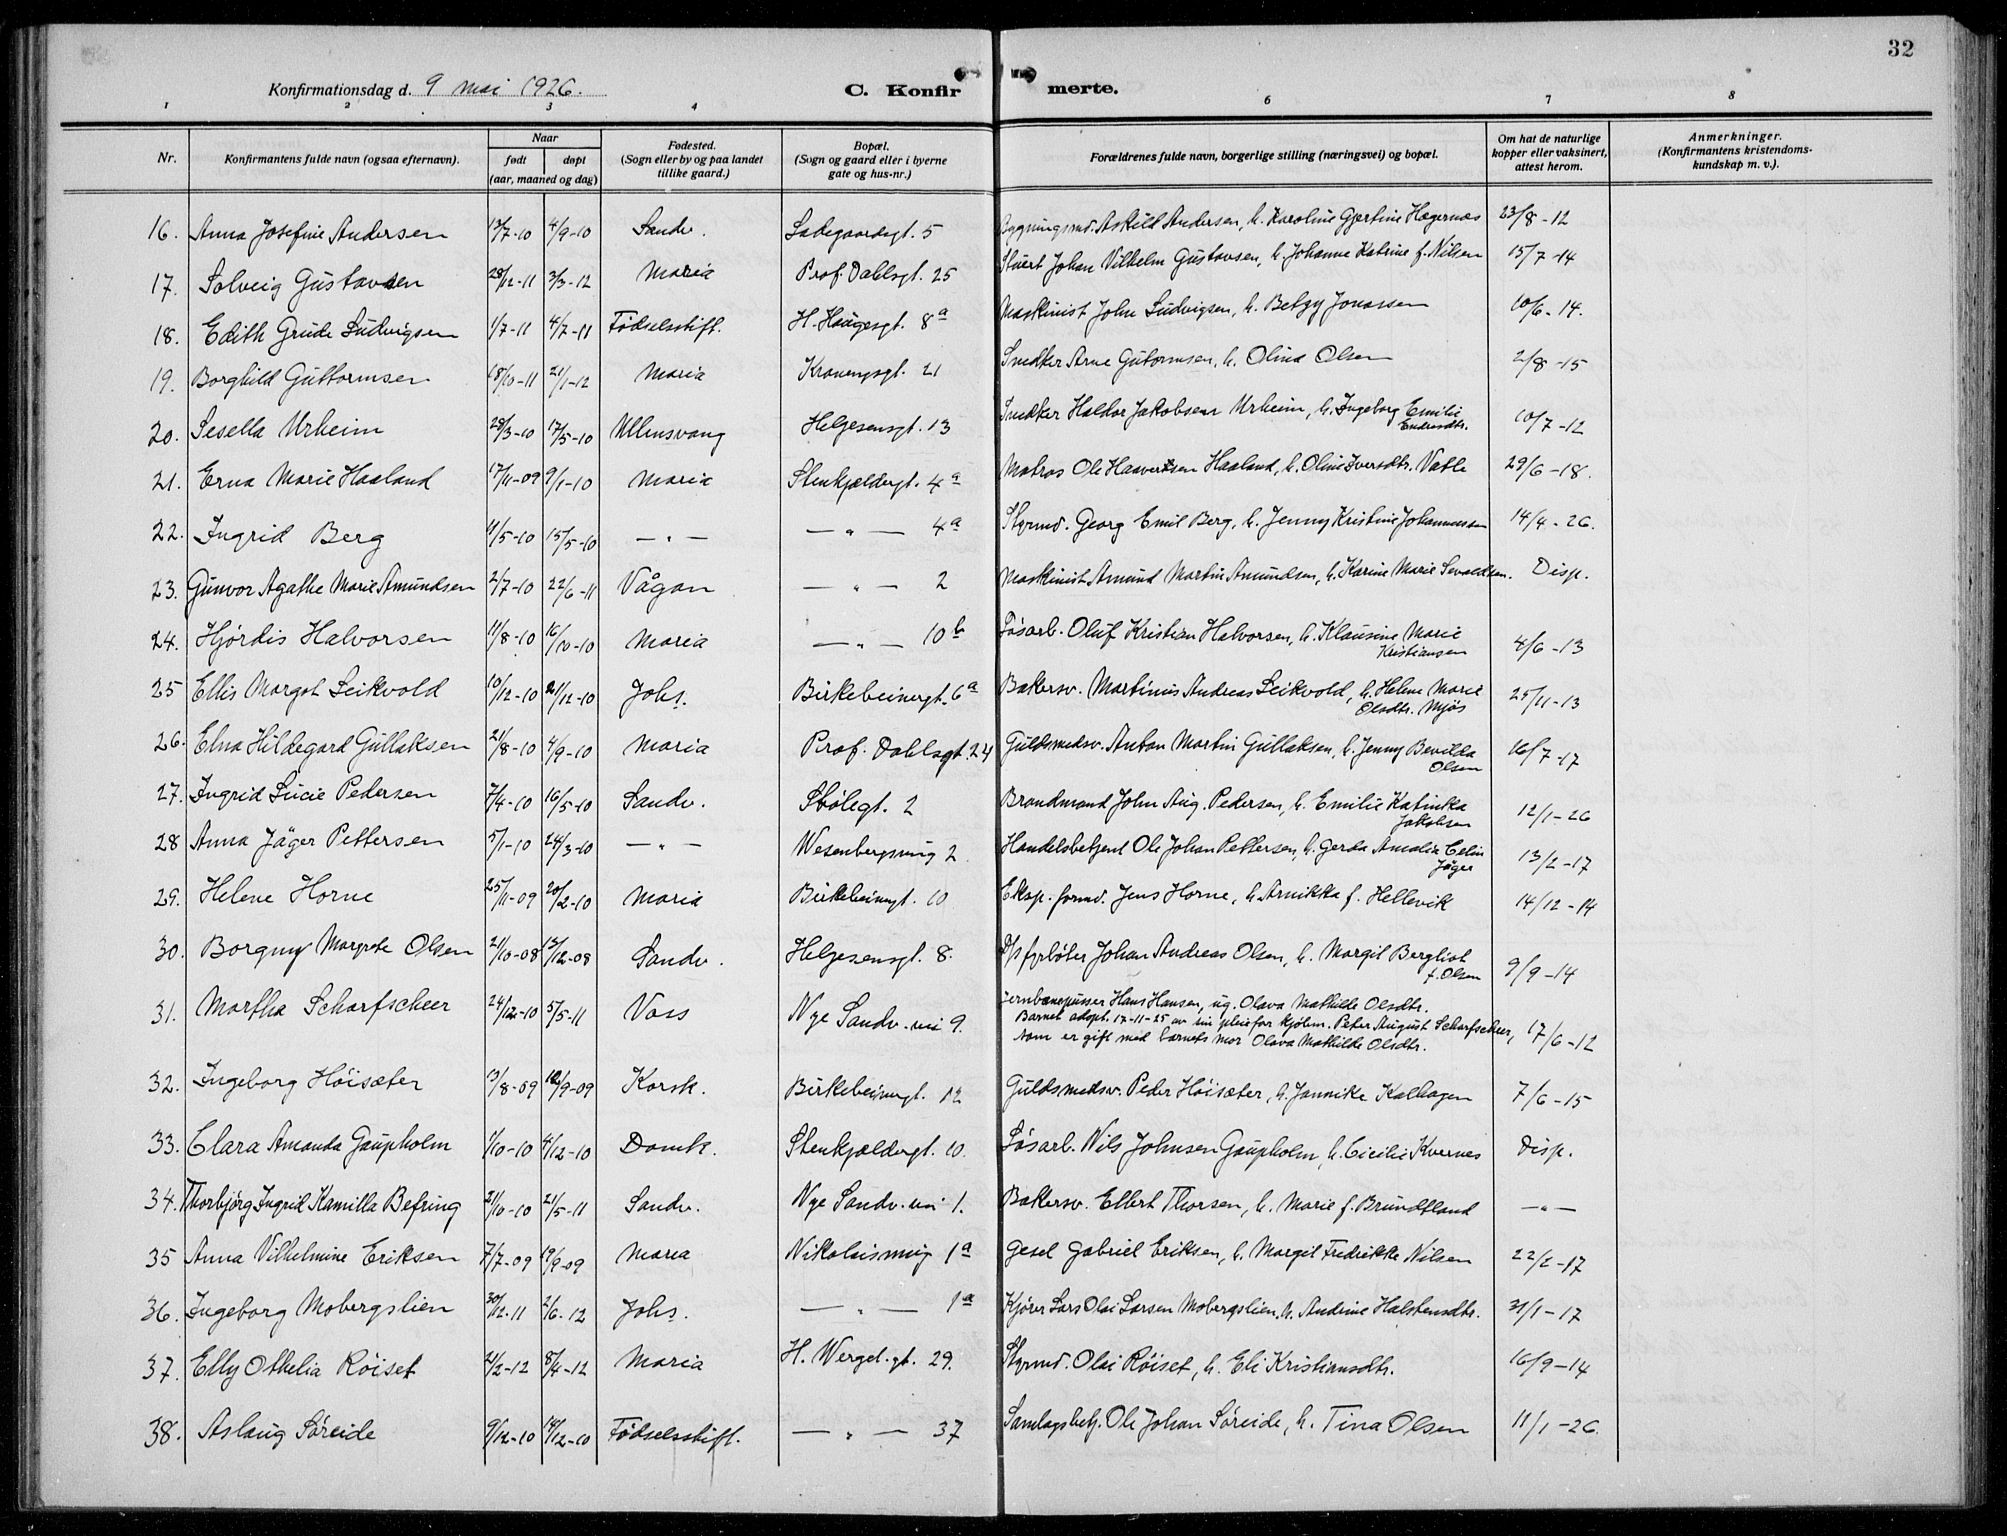 32
Konfirmationsdag d. 9 mai 1926.
C. Konfirmerte.
1 2 3 4 6 7 8
Nr. Konfirmantens fulde navn (ogsaa efternavn). Naar født døpt (aar, maaned og dag) Fødested. (Sogn eller by og paa landet tillike gaard.) Bopæl. (Sogn og gaard eller i byerne gate og hus-nr.) Forældrenes fulde navn, borgerlige stilling (næringsvei) og bopæl. Om hat de naturlige kopper eller vaksinert, attest herom. Anmerkninger. (Konfirmantens kristendomskundskap m. v.).
16. Anna Josefine Andersen 13/7-10 4/9-10 Sandv. Ladegaardsgt. 5 Bygningssnd. Askild Andersen, h. Karoline Gjertine Hægernæs 23/8-12
17. Solveig Gustavsen 28/12-11 3/3-12 Maria Prof. Dahlsgt. 25 Stuert Johan Vilhelm Gustavsen, h. Johanne Katrine f. Nilsen 15/7-14
18. Edith Grude Ludvigsen 1/7-11 4/7-11 Fødselsstift. H. Haugesgt. 8a Maskinist John Ludvigsen, h. Betzy Jonassen 10/6-14.
19. Borghild Guttormsen 18/10-11 21/1-12 Maria Kronengsgt. 21 Snedker Arne Gutormsen, h. Olina Olsen 2/8-15
20. Sesella Urheim 28/3-10 17/5-10 Ullensvang Helgesensgt. 13 Snedker Haldor Jakobsen Urheim, h. Ingeborg Emilie Endresdtr. 10/7-12
21. Erna Marie Haaland 17/11-09 9/1-10 Maria Stenkjeldergt. 4a Matros Ole Haavertsen Haaland, h. Oline Iversdtr. Vatle 29/6-18.
22. Ingrid Berg 11/5-10 15/5-10 — " — — " — 4a Styrmd. Georg Emil Berg, h. Jenny Kristine Johannessen 14/4-26.
23. Gunvor Agathe Marie Amundsen 2/7-10 22/6-11 Vågan — " — 2 Maskinist Amund Martin Amundsen, h. Karine Marie Sevaldsen. Disp.
24. Hjørdis Halvorsen 11/8-10 16/10-10 Maria — " — 10b Løsarb. Oluf Kristian Halvorsen, h. Klausine Marie Kristiansen 4/6-13
25 Ellis Margot Leikvold 10/12-10 21/12-10 Johs. Birkebeinergt. 6a Bakersv. Martinus Andreas Leikvold, h. Helene Marie Olsdtr. Mjøs 25/11-13
26. Elna Hildegard Gullaksen 21/8-10 4/9-10 Maria Prof. Dahlsgt. 24 Guldsmedsv. Anton Martin Gullaksen, h. Jenny Bevilda Olsen 16/7-17
27. Ingrid Lucie Pedersen 7/4-10 16/5-10 Sandv. Stølegt. 2 Brandmand John Aug. Pedersen, h. Emilie Katinka Jakobsen 12/1-26
28 Anna Jäger Pettersen 5/1-10 24/3-10 — " — Wesenbergsmug 2 Handelsbetjent Ole Johan Pettersen, h. Gerda Amalia Celin Jäger 13/2-17
29. Helene Horne 25/11-09 20/2-10 Maria Birkebeinergt. 10 Eksp. formd. Jens Horne, h. Arnikka f. Hellevik 14/12-14
30. Borgny Margrete Olsen 21/10-08 13/12-08 Sandv. Helgesensgt. 8. D/s fyrbøter Johan Andreas Olsen, h. Margit Bergliot f. Olsen 9/9-14
31. Martha Scharfscheer 24/12-10 5/5-11 Voss Nye Sandv. vei 9. Jernbanepusser Hans Hansen, ug. Olava Mathilde Olsdtr.
Barnet adopt. 17-11-25 av sin pleiefar kjølm. Peter August Scharfscheer,
som er gift med barnets mor Olava Mathilde Olsdtr. 17/6-12
32. Ingeborg Høisæter 13/8-09 12/9-09 Korsk. Birkebeinergt. 12 Guldsmedsv. Peder Høisæter, h. Jannike Kalhagen 7/6-15
33. Clara Amanda Gaupholm 1/10-10 4/12-10 Domk. Stenkjeldergt. 10. Løsarb. Nils Johnsen Gaupholm, h. Cicilie Kvernes Disp.
34. Thorbjørg Ingrid Kamilla Befring 21/10-10 21/5-11 Sandv. Nye Sandv. vei 1. Bakersv. Ellert Thorsen, h. Marie f. Brundtland — " —
35 Anna Vilhelmine Eriksen 7/7-09 19/9-09 Maria Nikolaismug 1a Gesel Gabriel Eriksen, h. Margit Fredrikke Nilsen 22/2-17
36. Ingeborg Mobergslien 30/12-11 2/6-12 Johs. — " — 1a Kjører Lars Olai Larsen Mobergslien, h. Andrine Halstensdtr. 31/1-17
37. Elly Othelia Røiset 2/2-12 8/4-12 Maria H. Wergel. gt. 29. Styrmd. Olai Røiset, h. Eli Kristiansdtr. 16/9-14
38. Aslaug Søreide 9/12-10 14/12-10 Fødselsstift. — " — 37 Samlagsbetj. Ole Johan Søreide, h. Tina Olsen 11/1-26.